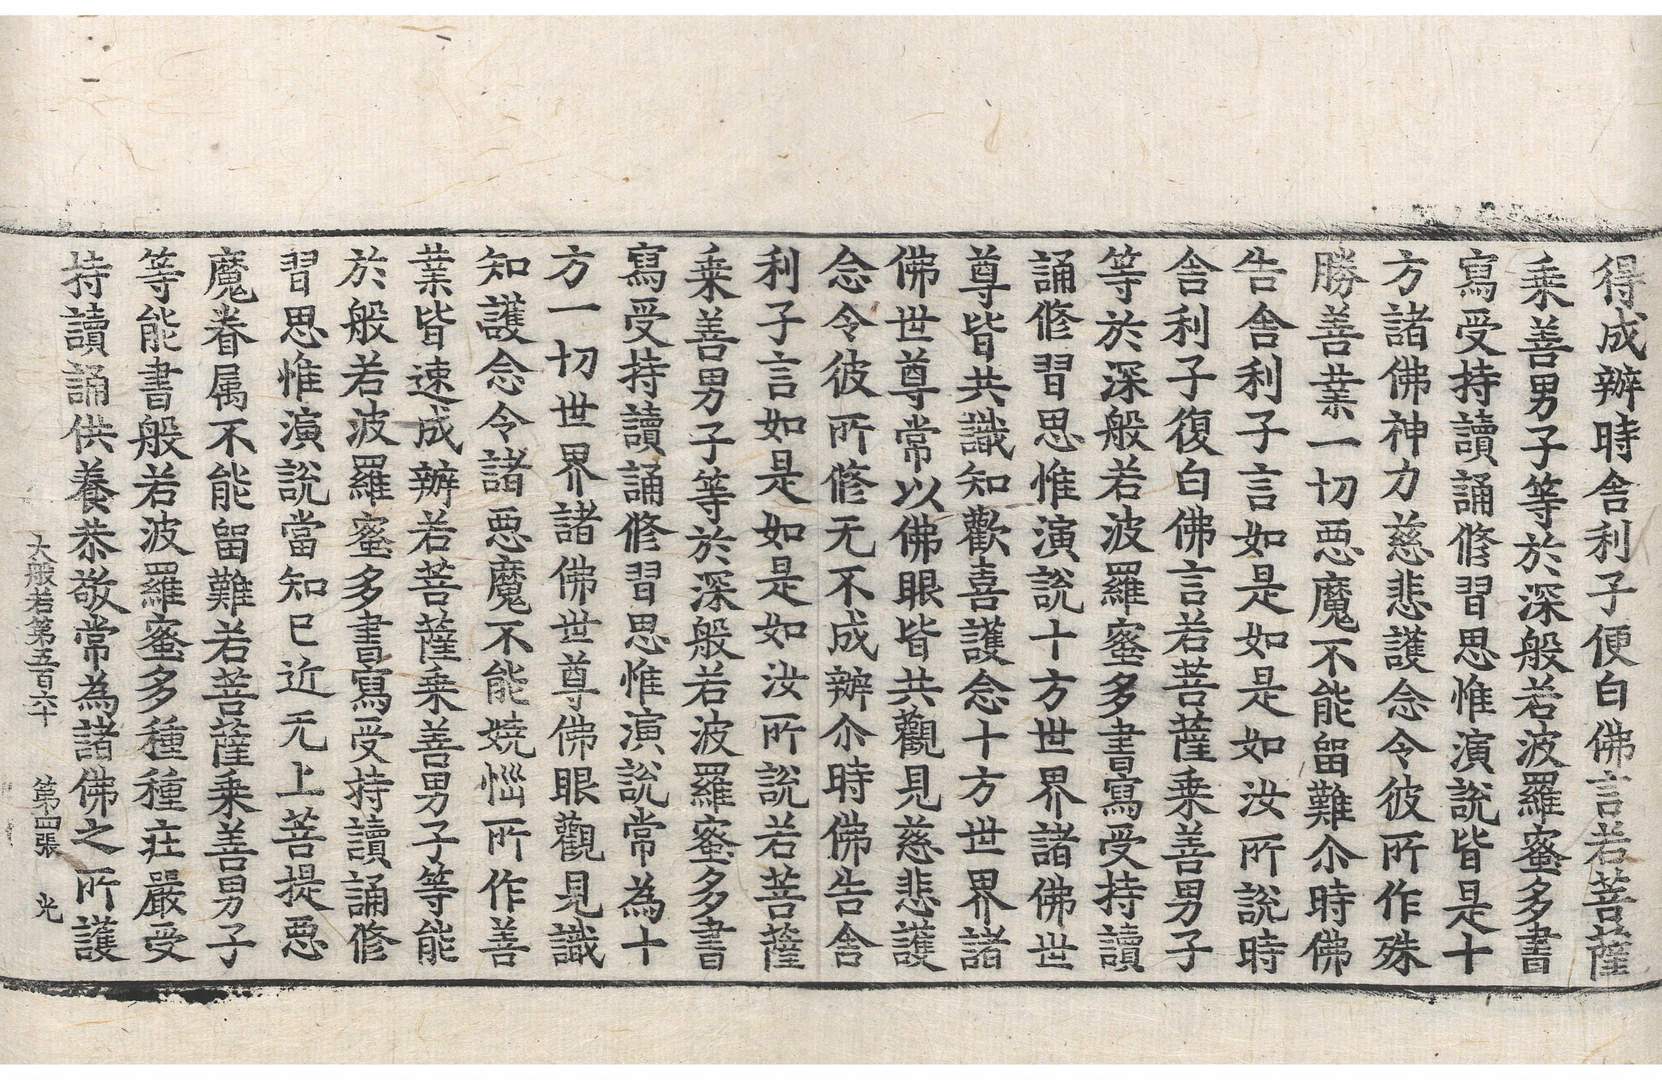 得成辦時舍利子便白佛言若菩薩
乗善男子等於深般若波羅蜜多書
寫受持讀誦修習思惟演說皆是十
方諸佛神力慈悲護念令彼所作殊
勝善業一切惡魔不能留難尒時佛
告舍利子言如是如是如汝所說時
舍利子復白佛言若菩薩乗善男子
等於深般若波羅蜜多書寫受持讀
誦修習思惟演說十方世界諸佛世
尊皆共識知歡喜護念十方世界諸
佛世尊常以佛眼皆共觀見慈悲護
念令彼所修无不成辦尒時佛告舍
利子言如是如是如汝所說若菩薩
乗善男子等於深般若波羅蜜多書
寫受持讀誦修習思惟演說常為十
方一切世界諸佛世尊佛眼觀見識
知護念令諸惡魔不能嬈惱所作善
業皆速成辦若菩薩乗善男子等能
於般若波羅蜜多書寫受持讀誦修
習思惟演說當知已近无上菩提惡
魔眷属不能留難若菩薩乗善男子
等能書般若波羅蜜多種種莊嚴受
持讀誦供養恭敬常為諸佛之所護
大般若第五百六十 第四張 光